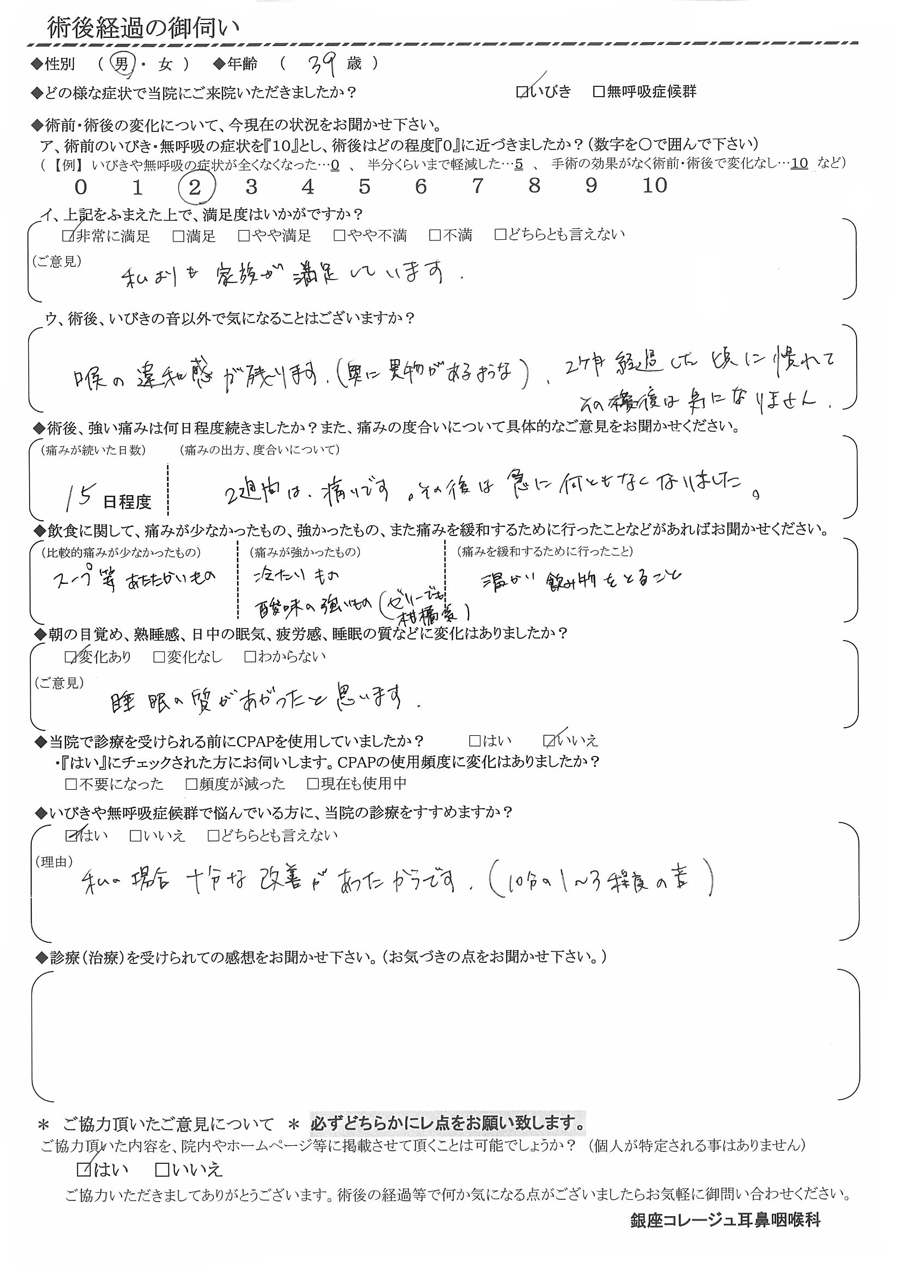 術後経過の御伺い
◆性別 （ 男 ・ 女 ） ◆年齢 （ 39 歳 ）
◆どの様な症状で当院にご来院いただきましたか？ ☑いびき □無呼吸症候群
◆術前・術後の変化について、今現在の状況をお聞かせ下さい。
ア、術前のいびき・無呼吸の症状を『10』とし、術後はどの程度『0』に近づきましたか？（数字を〇で囲んで下さい）
（ 【例】 いびきや無呼吸の症状が全くなくなった…0 、 半分くらいまで軽減した…5 、 手術の効果がなく術前・術後で変化なし…10 など）
0 1 2 3 4 5 6 7 8 9 10
イ、上記をふまえた上で、満足度はいかがですか？
☑非常に満足 □満足 □やや満足 □やや不満 □不満 □どちらとも言えない
（ご意見）
私よりも 家族が 満足しています．
ウ、術後、いびきの音以外で気になることはございますか？
喉の違和感が残ります．（奥に異物があるような）、2ケ月経過した頃に慣れて
その後は気になりません．
◆術後、強い痛みは何日程度続きましたか？また、痛みの度合いについて具体的なご意見をお聞かせください。
（痛みが続いた日数） （痛みの出方、度合いについて）
15 日程度 2週間は、痛いです。その後は急に何ともなくなりました。
◆飲食に関して、痛みが少なかったもの、強かったもの、また痛みを緩和するために行ったことなどがあればお聞かせください。
（比較的痛みが少なかったもの） （痛みが強かったもの） （痛みを緩和するために行ったこと）
スープ等 あたたかいもの 冷たいもの 温かい 飲み物をとること
酸味の強いもの（ゼリーでも
柑橘系）
◆朝の目覚め、熟睡感、日中の眠気、疲労感、睡眠の質などに変化はありましたか？
☑変化あり □変化なし □わからない
（ご意見）
睡眠の質があがったと思います．
◆当院で診療を受けられる前にCPAPを使用していましたか？ □はい ☑いいえ
・『はい』にチェックされた方にお伺いします。CPAPの使用頻度に変化はありましたか？
□不要になった □頻度が減った □現在も使用中
◆いびきや無呼吸症候群で悩んでいる方に、当院の診療をすすめますか？
☑はい □いいえ □どちらとも言えない
（理由）
私の場合 十分な改善があったからです．（10分の1〜3程度の音）
◆診療（治療）を受けられての感想をお聞かせ下さい。（お気づきの点をお聞かせ下さい。）
＊ ご協力頂いたご意見について ＊ 必ずどちらかにレ点をお願い致します。
ご協力頂いた内容を、院内やホームページ等に掲載させて頂くことは可能でしょうか？ （個人が特定される事はありません）
☑はい □いいえ
ご協力いただきましてありがとうございます。術後の経過等で何か気になる点がございましたらお気軽に御問い合わせください。
銀座コレージュ耳鼻咽喉科